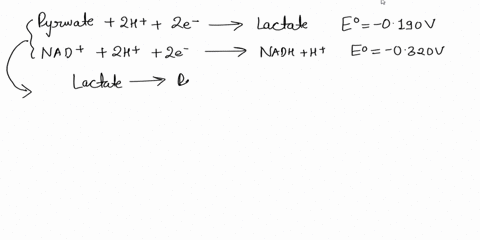 Pyruvate + 2H⁺ + 2e⁻ ⟶ Lactate E⁰ = -0.190V
NAD⁺ + 2H⁺ + 2e⁻ ⟶ NADH + H⁺ E⁰ = -0.320V
Lactate ⟶